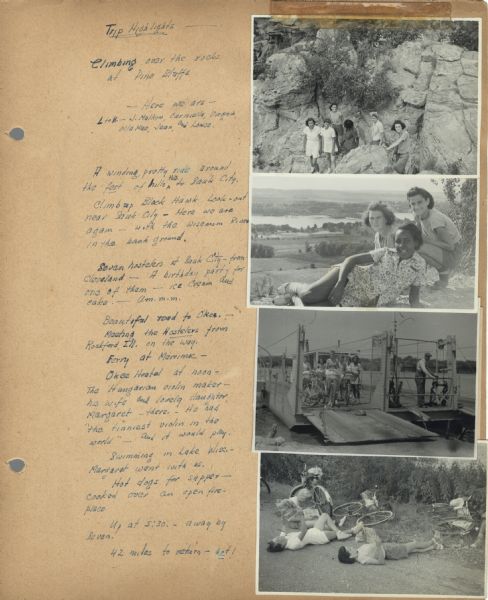 Trip Highlights
Climbing over the rocks
at Pine Bluffs
- Here we are -
L to R - J. Mathon, Carmella, Virginia
Olla Mae, Jean, and Louise.
A winding, pretty ride around
the feet of hills to Sauk City.
Climb up Black Hawk Look-out
near Sauk City - Here we are
again - with the Wisconsin River
in the back ground.
Seven hostelers at Sauk City - from
Cleveland - A birthday party for
one of them - ice cream and
cake! - Um.m.m.
Beautiful road to Okee. -
Meeting the Hostelers from
Rockford, Ill. on the way.
Ferry at Merrimac -
Okee Hostel at noon -
The Hungarian violin maker -
his wife and lovely daughter,
Margaret - there. - He had
"the tinniest violin in the
world" - and it would play.
Swimming in Lake Wisc. -
Margaret went with us.
Hot dogs for supper -
cooked over an open fire-
place
Up at 5:30. - away by
seven.
42 miles to return - hot!